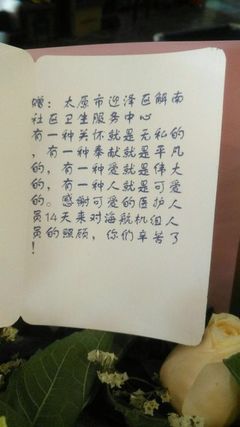 赠：太原市迎泽区解南
社区卫生服务中心
有一种关怀就是无私的
，有一种奉献就是平凡
的，有一种爱就是伟大
的，有一种人就是可爱
的。感谢可爱的医护人
员14天来对海航机组人
员的照顾，你们辛苦了
！